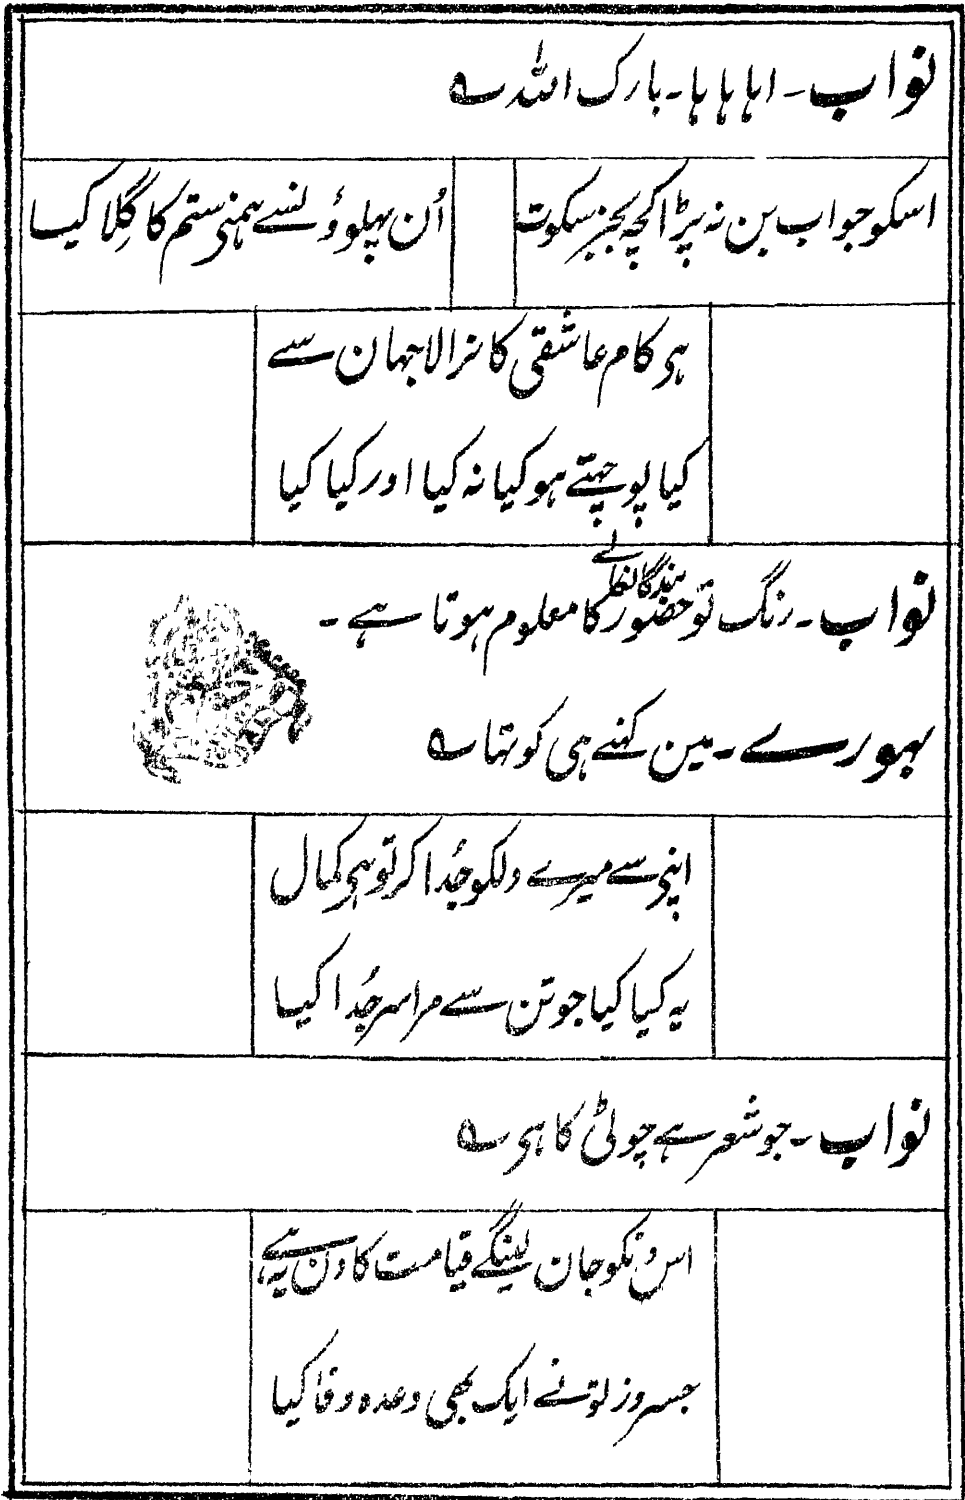 نواب۔ اہاہاہا۔ بارک اللہ ؎
اسکو جواب بن نہ پڑا کچہ بجز سکوت
اُن پہلوؤنسے ہمنی ستم کا گِلا کیا
ہی کام عاشقی کا نرالا جہان سے
کیا پوچہتے ہو کیا نہ کیا اور کیا کیا
نواب۔ رنگ تو حضور کا معلوم ہوتا ہے۔
بہورے۔ مین کہنے ہی کو تہا ؎
اپنی سے میرے دلکو جُدا کر تو ہی کمال
یہ کیا کیا جو تن سے مرا سر جُدا کیا
نواب۔ جو شعر ہے چوٹی کا ہی ؎
اس دنکو جان لینگے قیامت کا دن یہ ہے
جسروز تو نے ایک بھی وعدہ وفا کیا